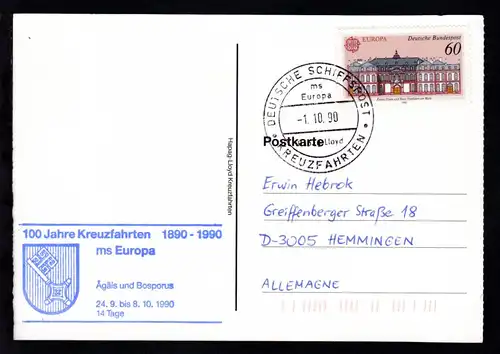 EUROPA Deutsche Bundespost
60
DEUTSCHE SCHIFFSPOST
ms
Europa
-1.10.90
Lloyd
* KREUZFAHRTEN *
Postkarte
Hapag-Lloyd Kreuzfahrten
Erwin Hebrok
Greiffenberger Straße 18
D-3005 HEMMINGEN
ALLEMAGNE
100 Jahre Kreuzfahrten 1890-1990
ms Europa
Ägäis und Bosporus
24. 9. bis 8. 10. 1990
14 Tage